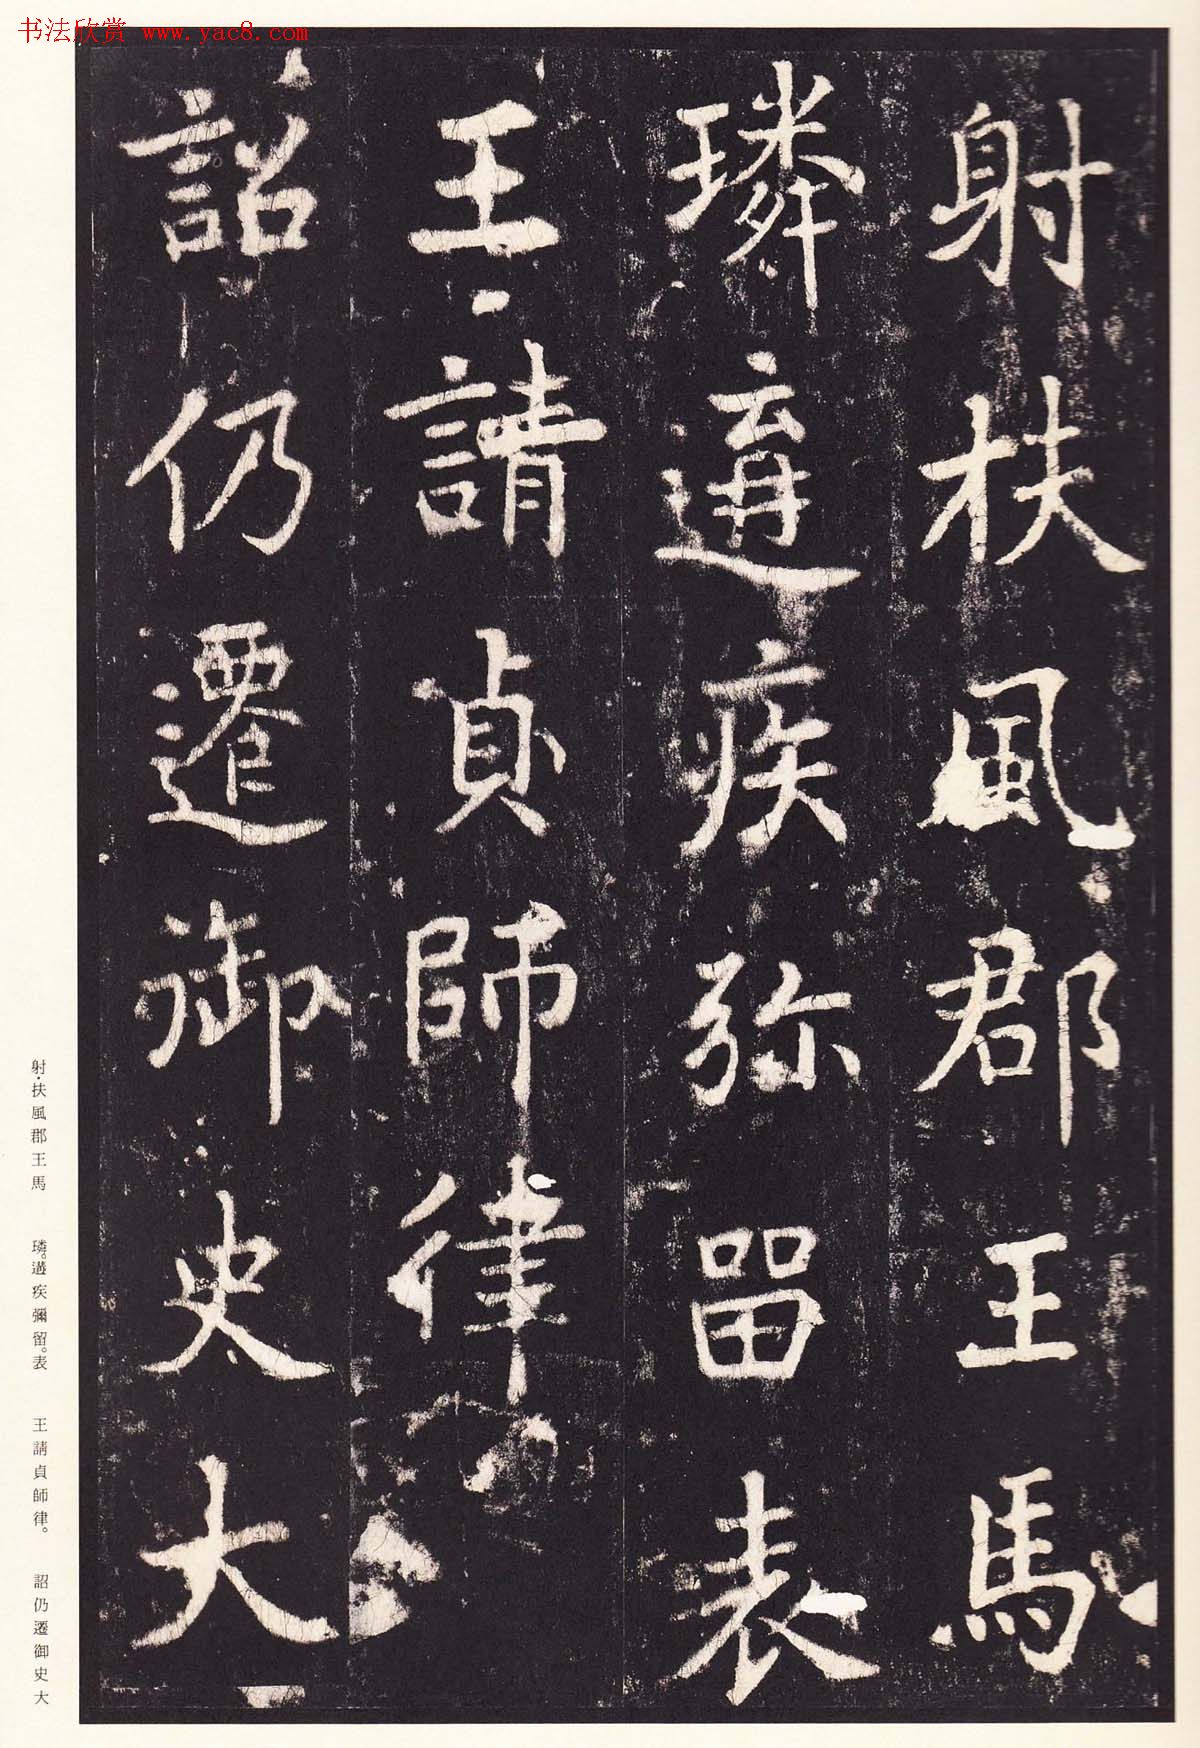 书法欣赏 www.yac8.com
射扶風郡王馬
璘遘疾弥留表
王請貞師律
詔仍遷御史大
射·扶風郡王馬 璘。遘疾彌留。表 王請貞師律。 詔仍遷御史大